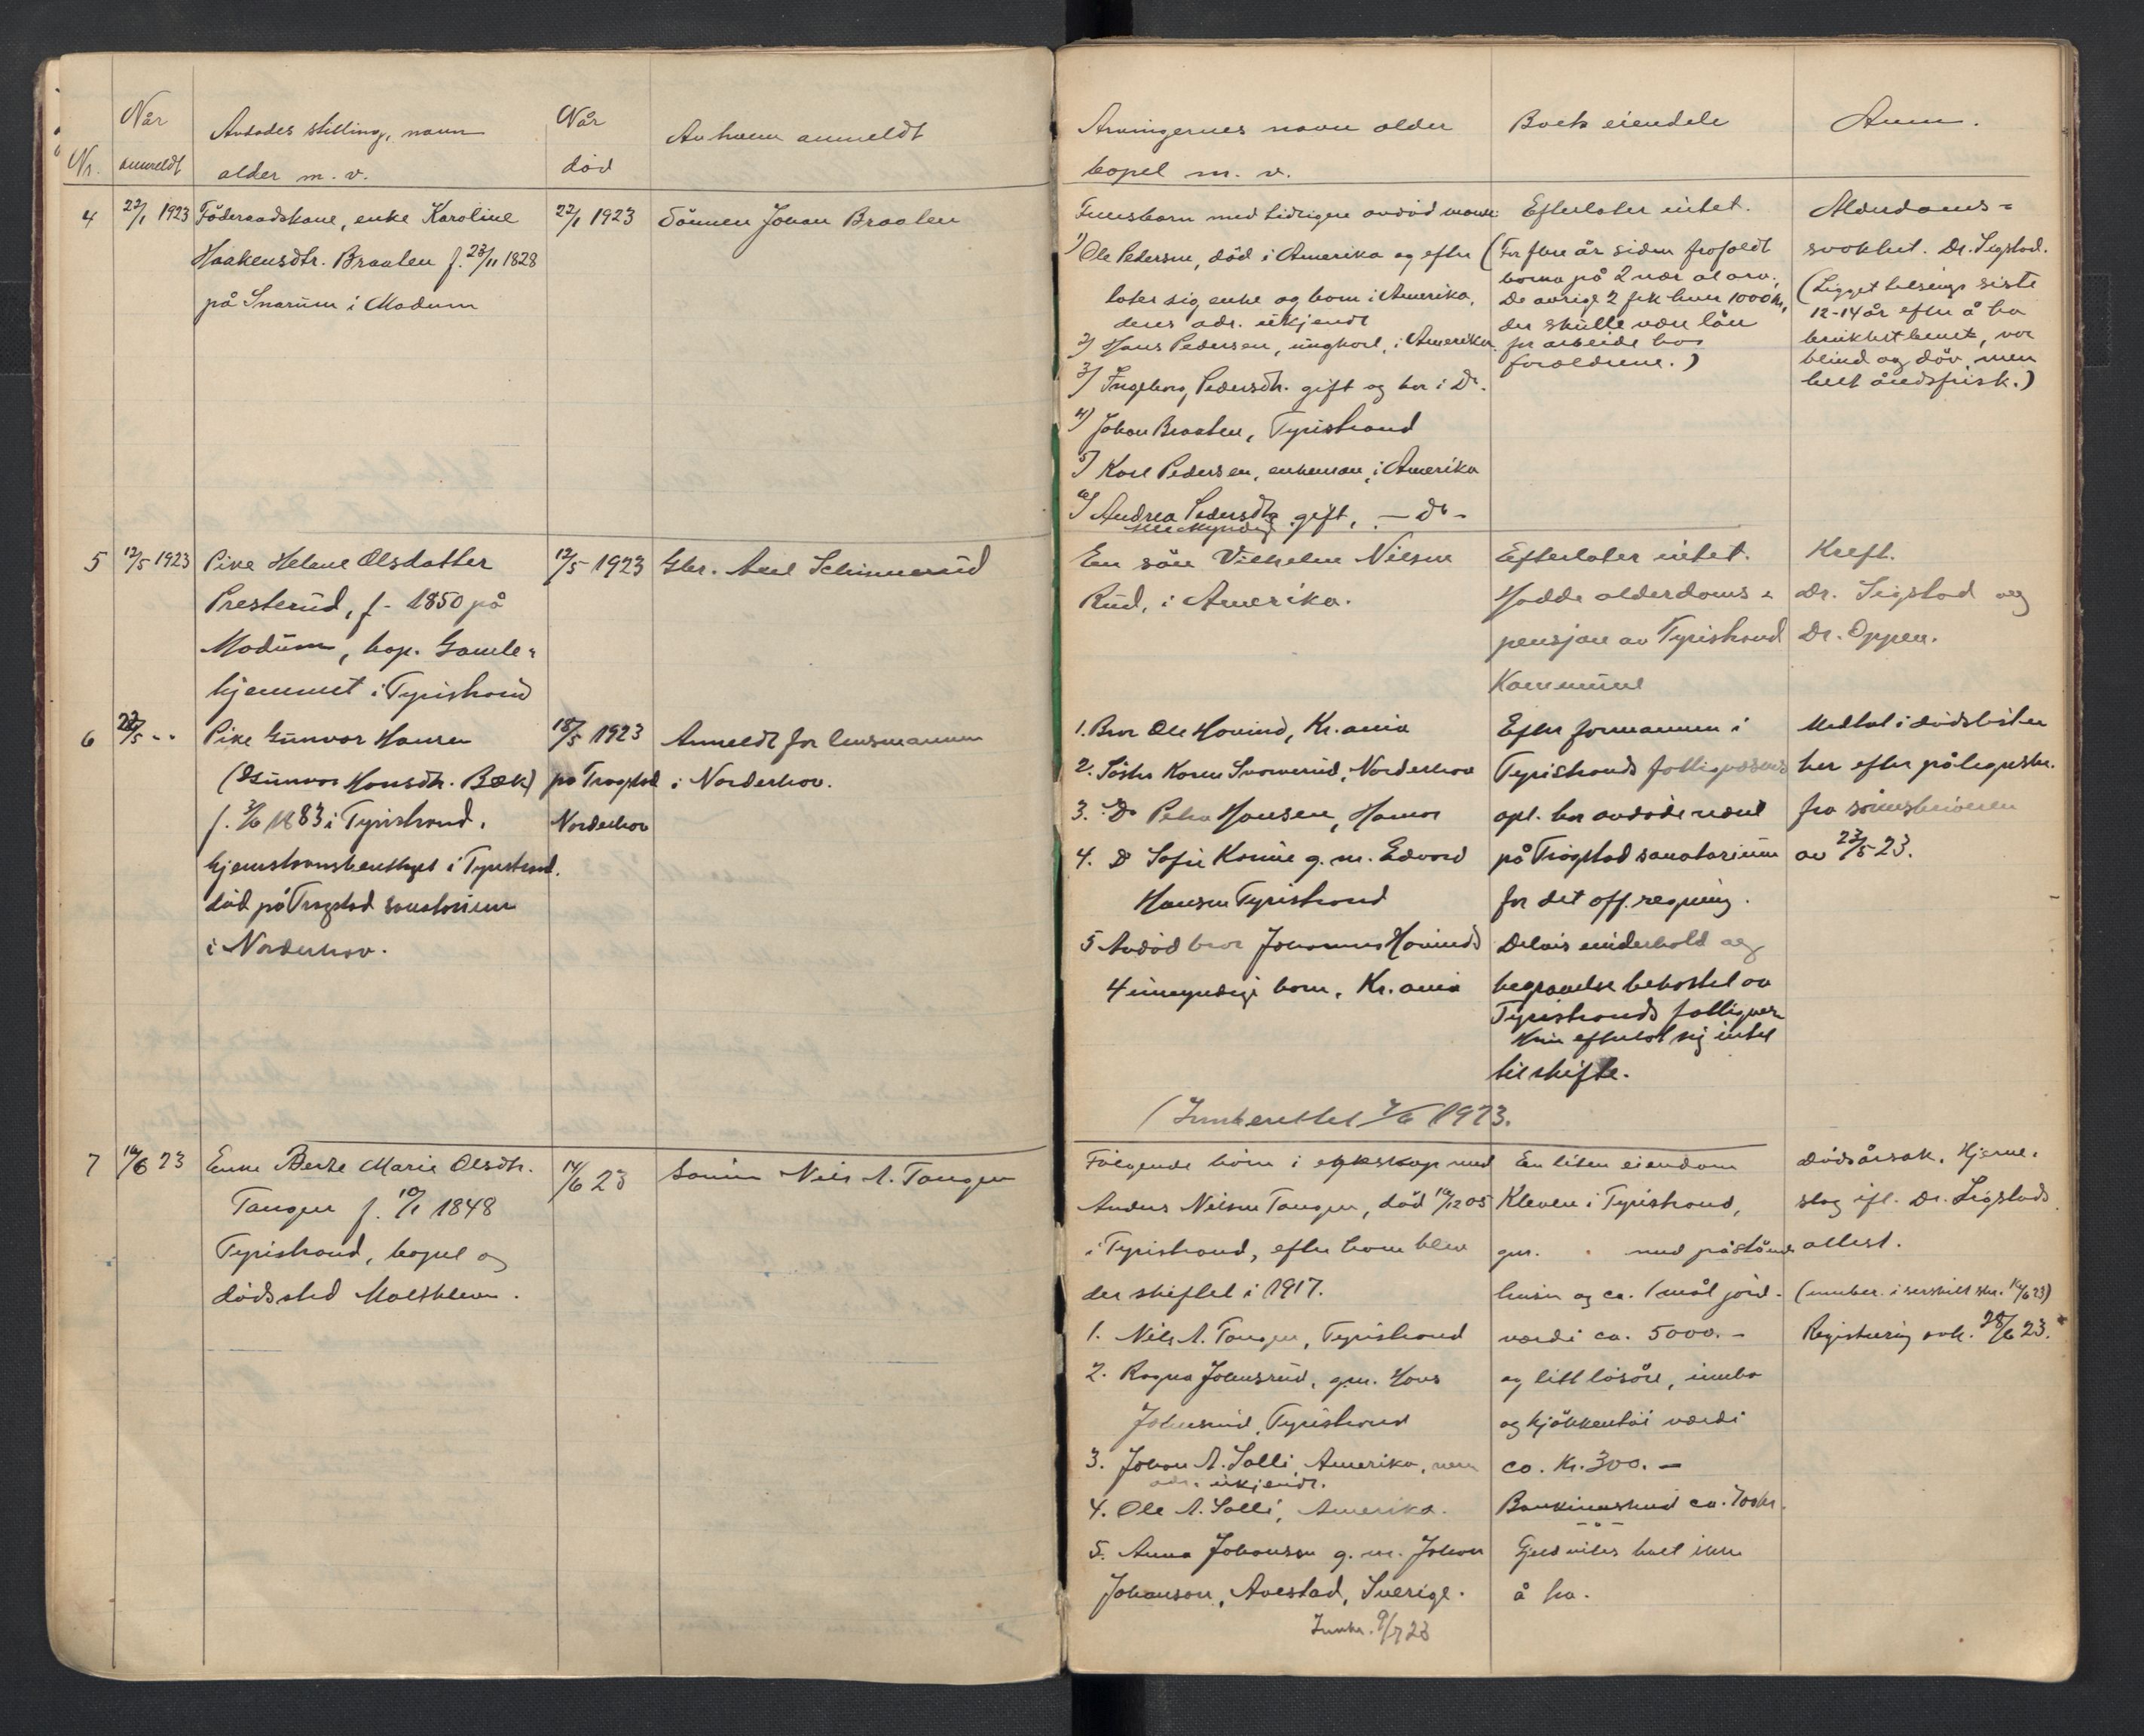 Når
Avdødes stilling, navn
Når
Av hvem anmeldt
Nr.
anmeldt
alder m. v.
död
4
22/1 1923
Föderaadskone, enke Karoline
22/1 1923
Sönnen Johan Braaten
Haakensdtr. Braaten f. 23/11 1828
på Snarum i Modum
5
12/5 1923
Pike Helene Olsdatter
12/5 1923
Gbr. Axel
Presterud, f. 1850 på
Modum, bop. Gamle-
hjemmet i Tyristrand
6
22/5 --
Pike Gunvor Hansen
18/5 1923
Anmeldt for lensmannen
(Gunvor Hansdtr. Bæk)
på Tragstad
i Norderhov.
f. 3/6 1883 i Tyristrand.
Norderhov
hjemstavnsberettiget i Tyristrand.
död på Tragstad sanatorium
i Norderhov.
7
14/6 23
Enke Berte Marie Olsdtr.
14/6 23
Sönnen Nils A. Tangen
Tangen f. 10/1 1848
Tyristrand, bopel og
dödssted
Arvingernes navn alder
Boets eiendele
Anm.
bopel m. v.
med tidligere avdöd mand:
Efterlater intet.
Alderdoms-
1) Ole Pedersen, död i Amerika og efter
(For flere år siden
svakhet. Dr. Sigstad.
later sig enke og barn i Amerika,
barna på 2 nær al arv.
(Ligget tilsengs siste
deres adr. ukjendt
De övrige 2 fik hver 1000 kr.,
12-14 år efter å ha
2) Hans Pedersen, ungkarl, i Amerika
der skulle være lön
brukket benet, var
3) Ingeborg Pedersdtr. gift og bor i Do.
for arbeide hos
blind og döv, men
foreldrene.)
helt åndsfrisk.)
4) Johan Braaten, Tyristrand
5) Karl Pedersen, enkeman, i Amerika
6) Andrea Pedersdtr. gift, - Do -
En sön Vilhelm Nilsen
Efterlater intet.
Kreft.
Rud, i Amerika.
Hadde alderdoms-
Dr. Sigstad og
pensjon av Tyristrand
Dr. Oppen.
Kommune
1. Bror Ole Hovind, Kr.ania
Efter formannen i
Medtat i dödslisten
2. Söster Karen Norderhov
Tyristrands fattigvesens
her efter påtegnskr.
3. Do Petra Hansen, Hamar
opl. har avdöde været
fra sorenskriveren
4. Do Sofie Karine g. m. Edvard
på Tragstad sanatorium
av 23/5 23.
Hansen Tyristrand
for det off. regning.
5 Avdöd bror Johannes Hovinds
Delvis underhold og
4 umyndige barn, Kr.ania
begravelse bekostet av
Tyristrands fattigvæsen
Hun efterlot sig intet
til skifte.
(Innberettet 7/6 1923.
Fölgende börn i egteskap med
En liten eiendom
Dödsårsak. Hjerne-
Anders Nilsen Tangen, död 16/12 05
Kleven i Tyristrand,
slag ifl. Dr. Sigstads
i Tyristrand, efter ham blev
gnr. med påstående
attest.
der skiftet i 1917.
huser og ca. 1 mål jord.
(innber. i særskilt skr. 14/6 23)
1. Nils A. Tangen, Tyristrand
verdi ca. 5000.-
Registrering avh. 28/6 23.
2. Ragna Johnsrud, gm. Hans
og litt lösöre, innbo
Johnsrud, Tyristrand
og kjökkentöi verdi
3. Johan A. Solli, Amerika, nærm
ca. Kr. 300.-
adr. ukjendt.
4. Ole A. Solli, Amerika.
Bankinnskud ca. 700 kr.
5. Anna Johansen g. m. Johan
Gjeld vites boet ikke
Johanson, Avestad, Sverige.
å ha.
Innber. 9/7 23